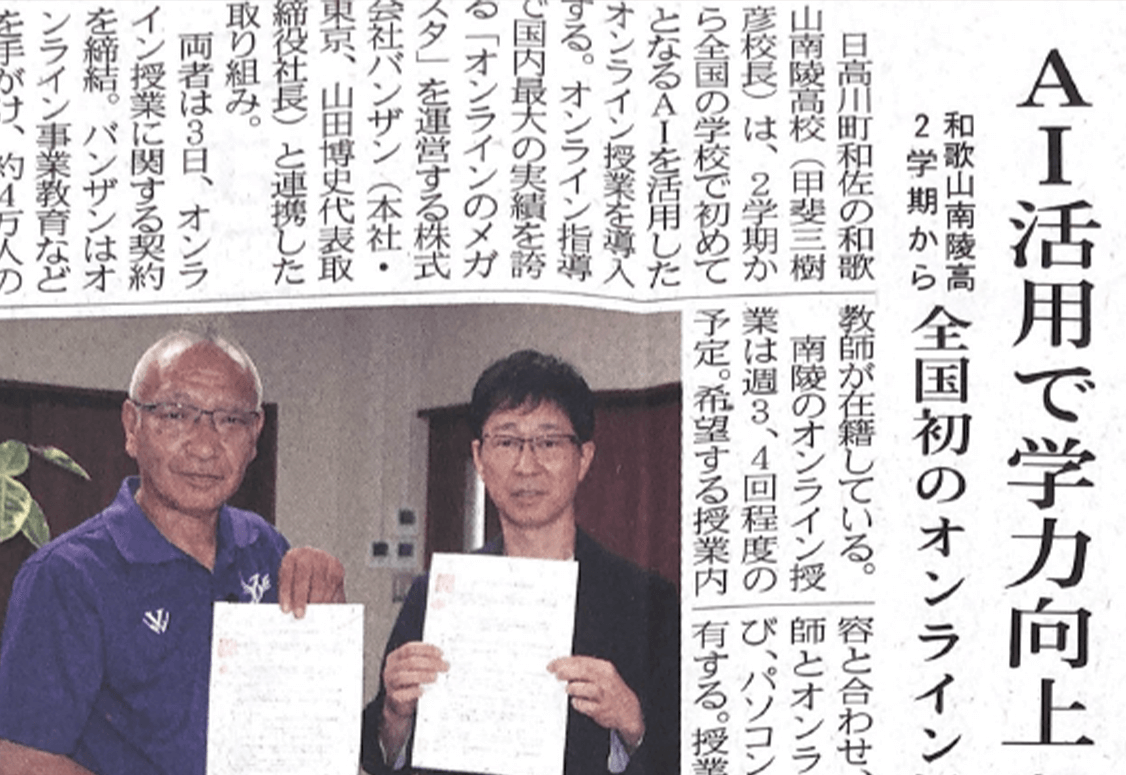 AI活用で学力向上
和歌山南陵高
2学期から
全国初のオンライン
日高川町和佐の和歌
山南陵高校（甲斐三樹
彦校長）は、2学期か
ら全国の学校で初めて
となるAIを活用した
オンライン授業を導入
する。オンライン指導
で国内最大の実績を誇
る「オンラインのメガ
スタ」を運営する株式
会社バンザン（本社・
東京、山田博史代表取
締役社長）と連携した
取り組み。
両者は3日、オンラ
イン授業に関する契約
を締結。バンザンはオ
ンライン事業教育など
を手がけ、約4万人の
教師が在籍している。
南陵のオンライン授
業は週3、4回程度の
予定。希望する授業内
容と合わせ、
師とオンラ
び、パソコン
有する。授業